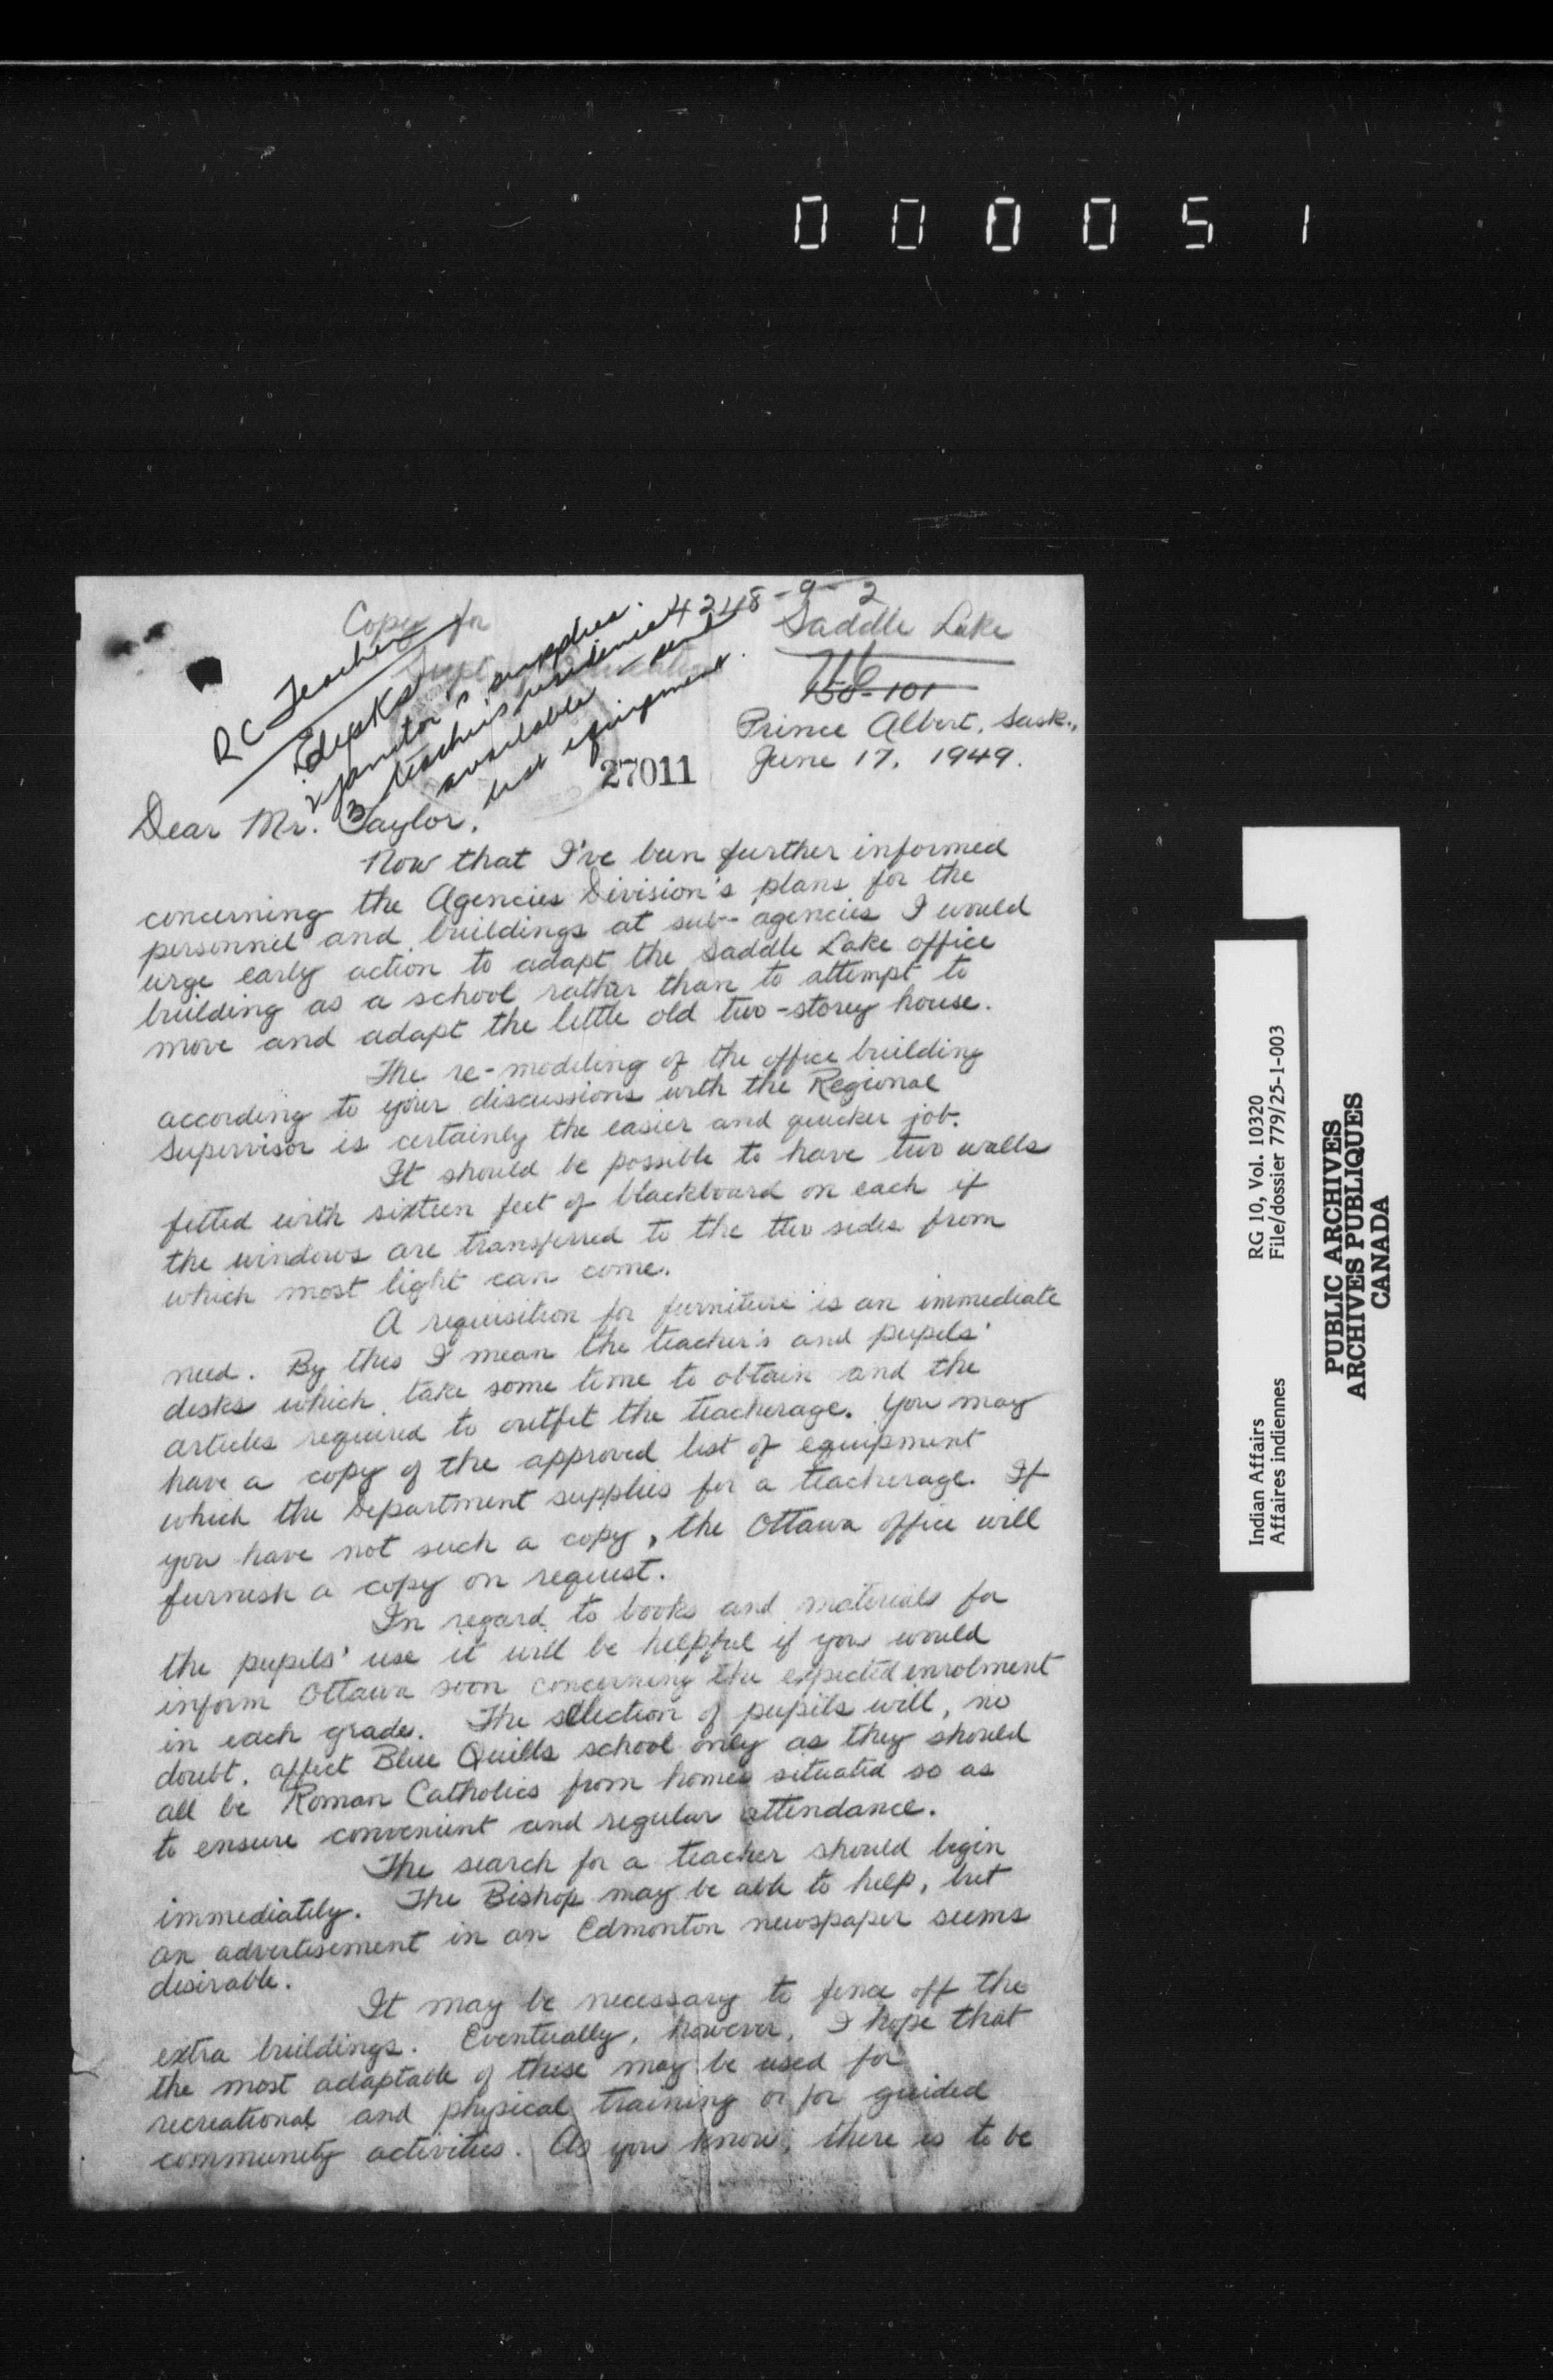 000051
4248-9-2
Copy for
Supt
RC Teacher
1 desks
2 janitor's supplies.
3 teacher's residence
available and
list equipment.
Saddle Lake
716
150-101
Prince Albert, Sask.,
June 17, 1949.
27011
Dear Mr. Taylor,
Now that I've been further informed
concerning the Agencies Division's plans for the
personnel and buildings at sub-agencies I would
urge early action to adapt the Saddle Lake office
building as a school rather than to attempt to
move and adapt the little old two-storey house.
The re-modeling of the office building
according to your discussions with the Regional
Supervisor is certainly the easier and quicker job.
It should be possible to have two walls
fitted with sixteen feet of blackboard on each if
the windows are transferred to the two sides from
which most light can come.
A requisition for furniture is an immediate
need. By this I mean the teacher's and pupils'
desks which take some time to obtain and the
articles required to outfit the teacherage. You may
have a copy of the approved list of equipment
which the Department supplies for a teacherage. If
you have not such a copy, the Ottawa office will
furnish a copy on request.
In regard to books and materials for
the pupils' use it will be helpful if you would
inform Ottawa soon concerning the expected enrolment
in each grade. The selection of pupils will, no
doubt, affect Blue Quills school only as they should
all be Roman Catholics from homes situated so as
to ensure convenient and regular attendance.
The search for a teacher should begin
immediately. The Bishop may be able to help, but
an advertisement in an Edmonton newspaper seems
desirable.
It may be necessary to fence off the
extra buildings. Eventually, however, I hope that
the most adaptable of these may be used for
recreational and physical training or for guided
community activities. As you know, there is to be
Indian Affairs RG 10, Vol. 10320
Affaires indiennes File/dossier 779/25-1-003
PUBLIC ARCHIVES
ARCHIVES PUBLIQUES
CANADA